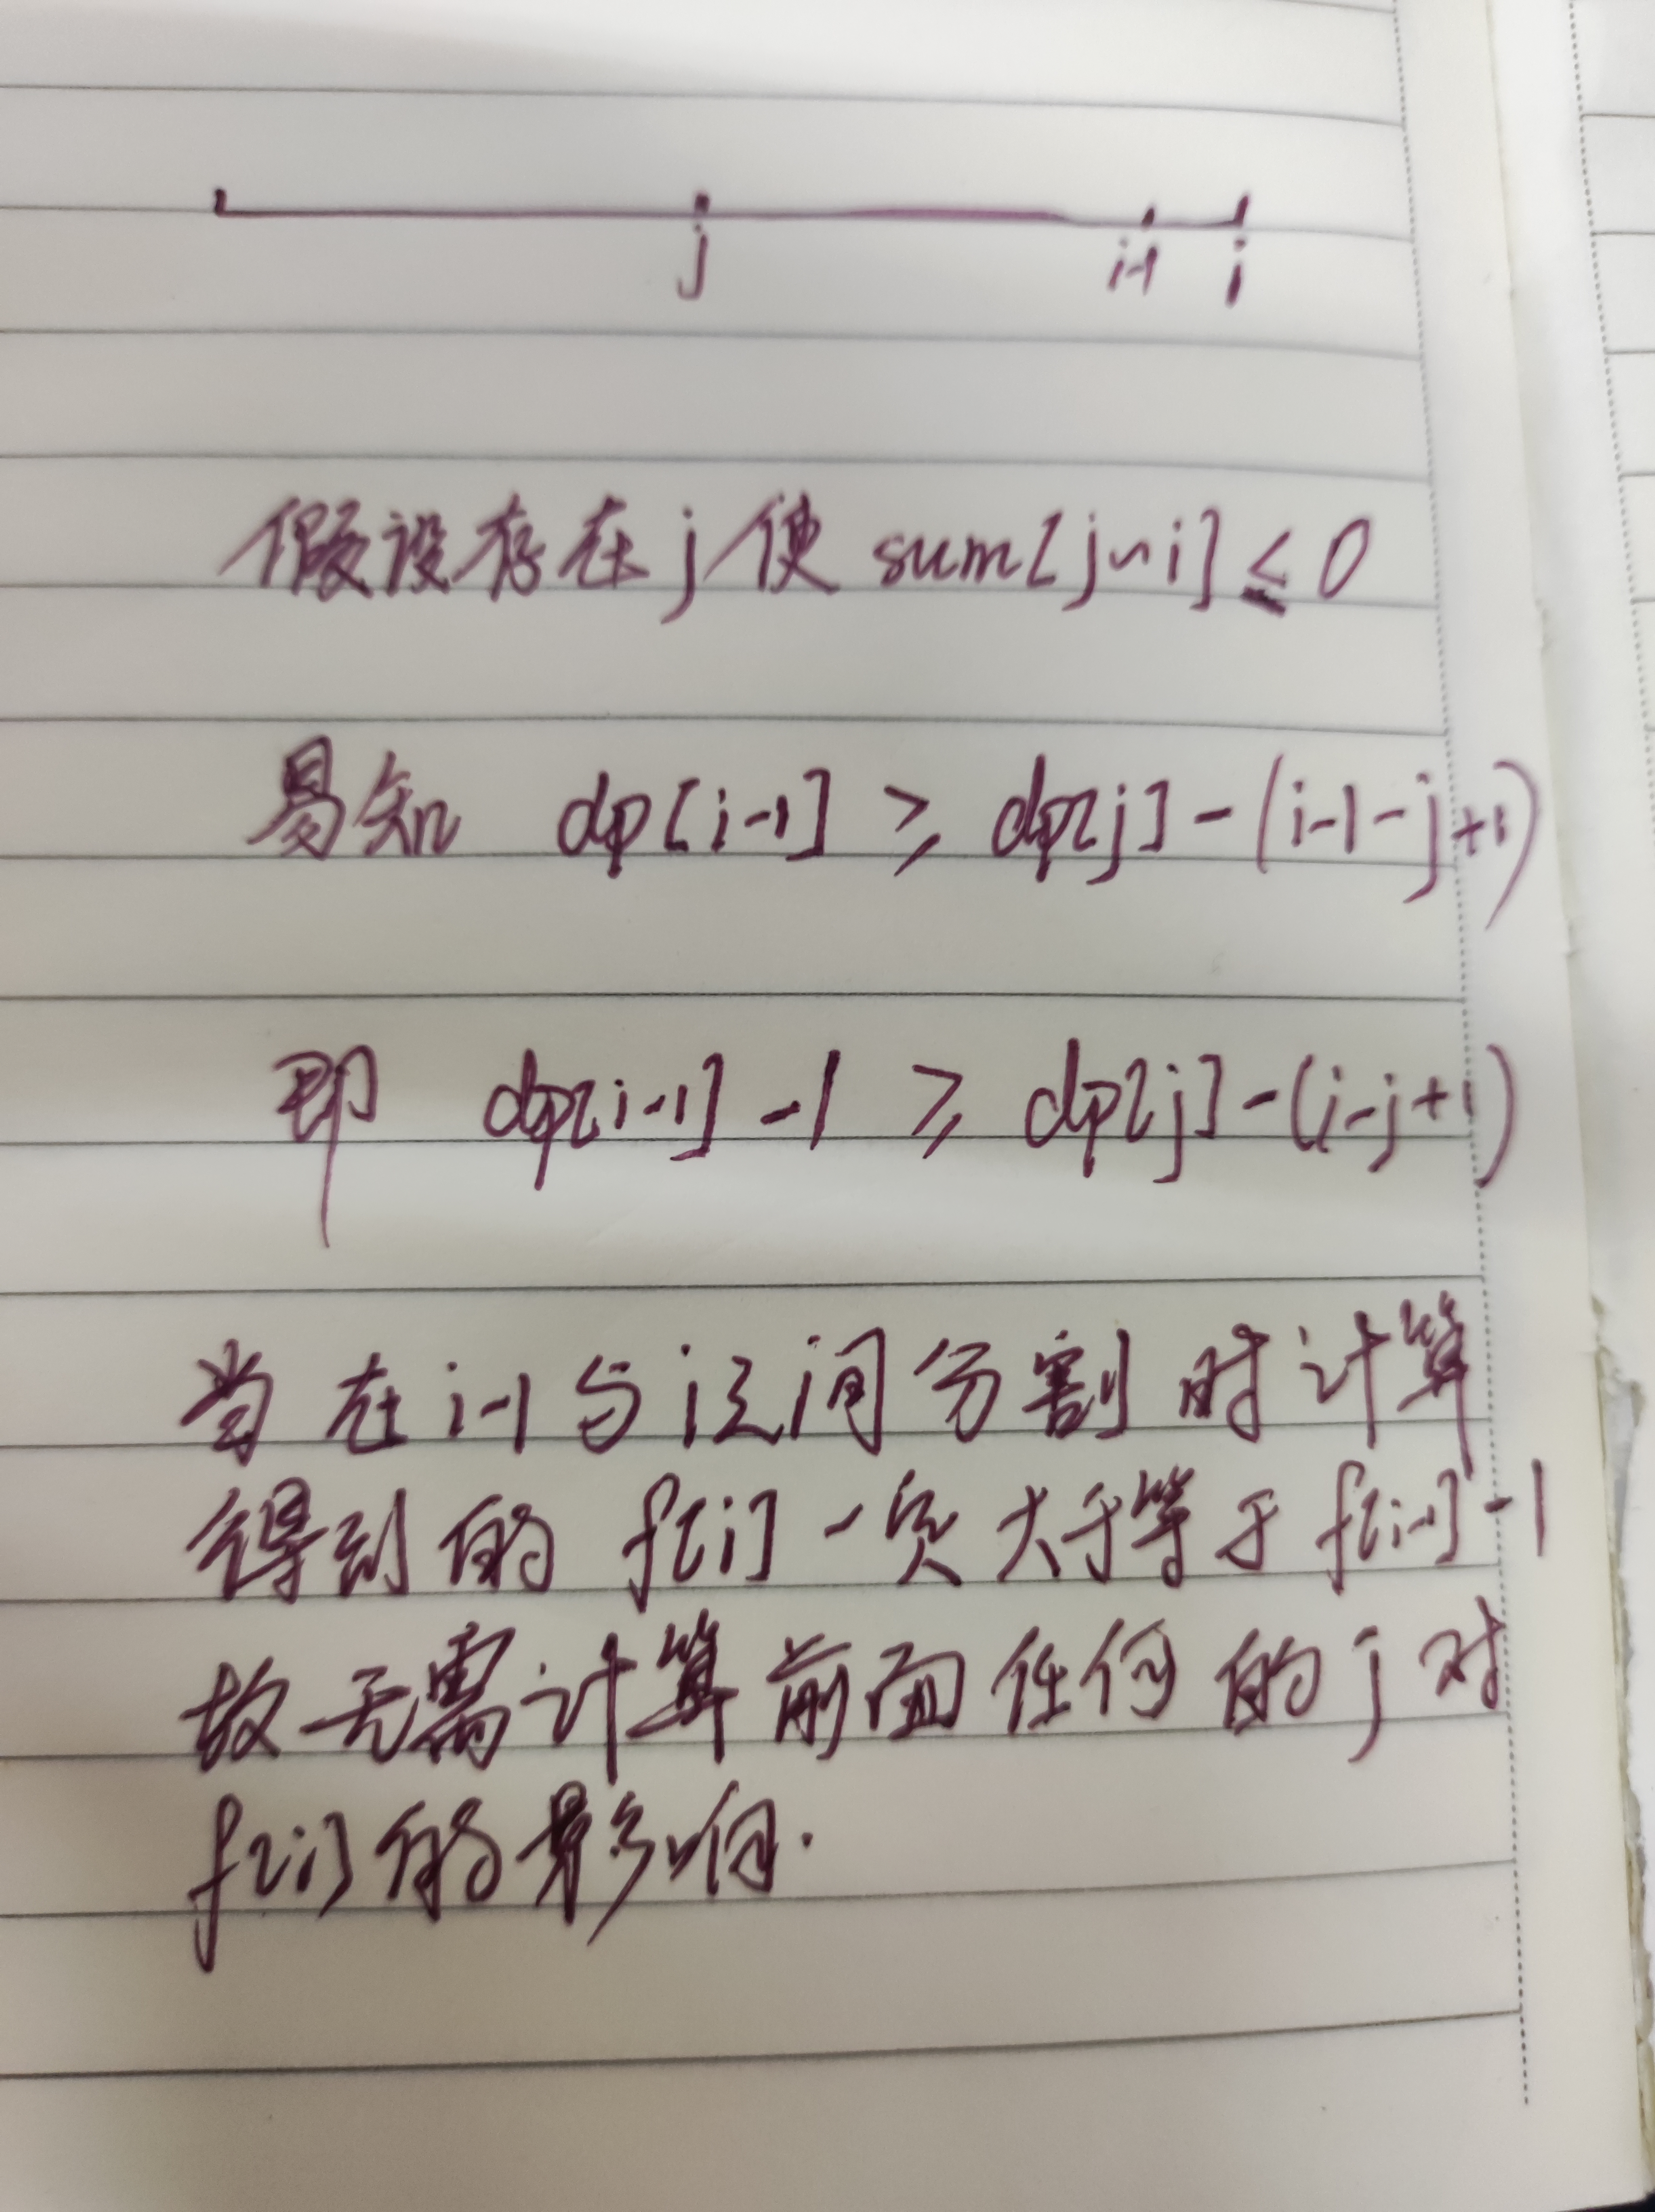 j i-1 i
假设存在 j 使 sum[j~i] ≤ 0
易知 dp[i-1] ≥ dp[j] - (i-1-j+1)
即 dp[i-1] -1 ≥ dp[j] - (i-j+1)
当在 i-1 与 i 之间分割时计算
得到的 f[i] 一定大于等于 f[i-1] -1
故无需计算前面任何的 j 对
f[i] 的影响.